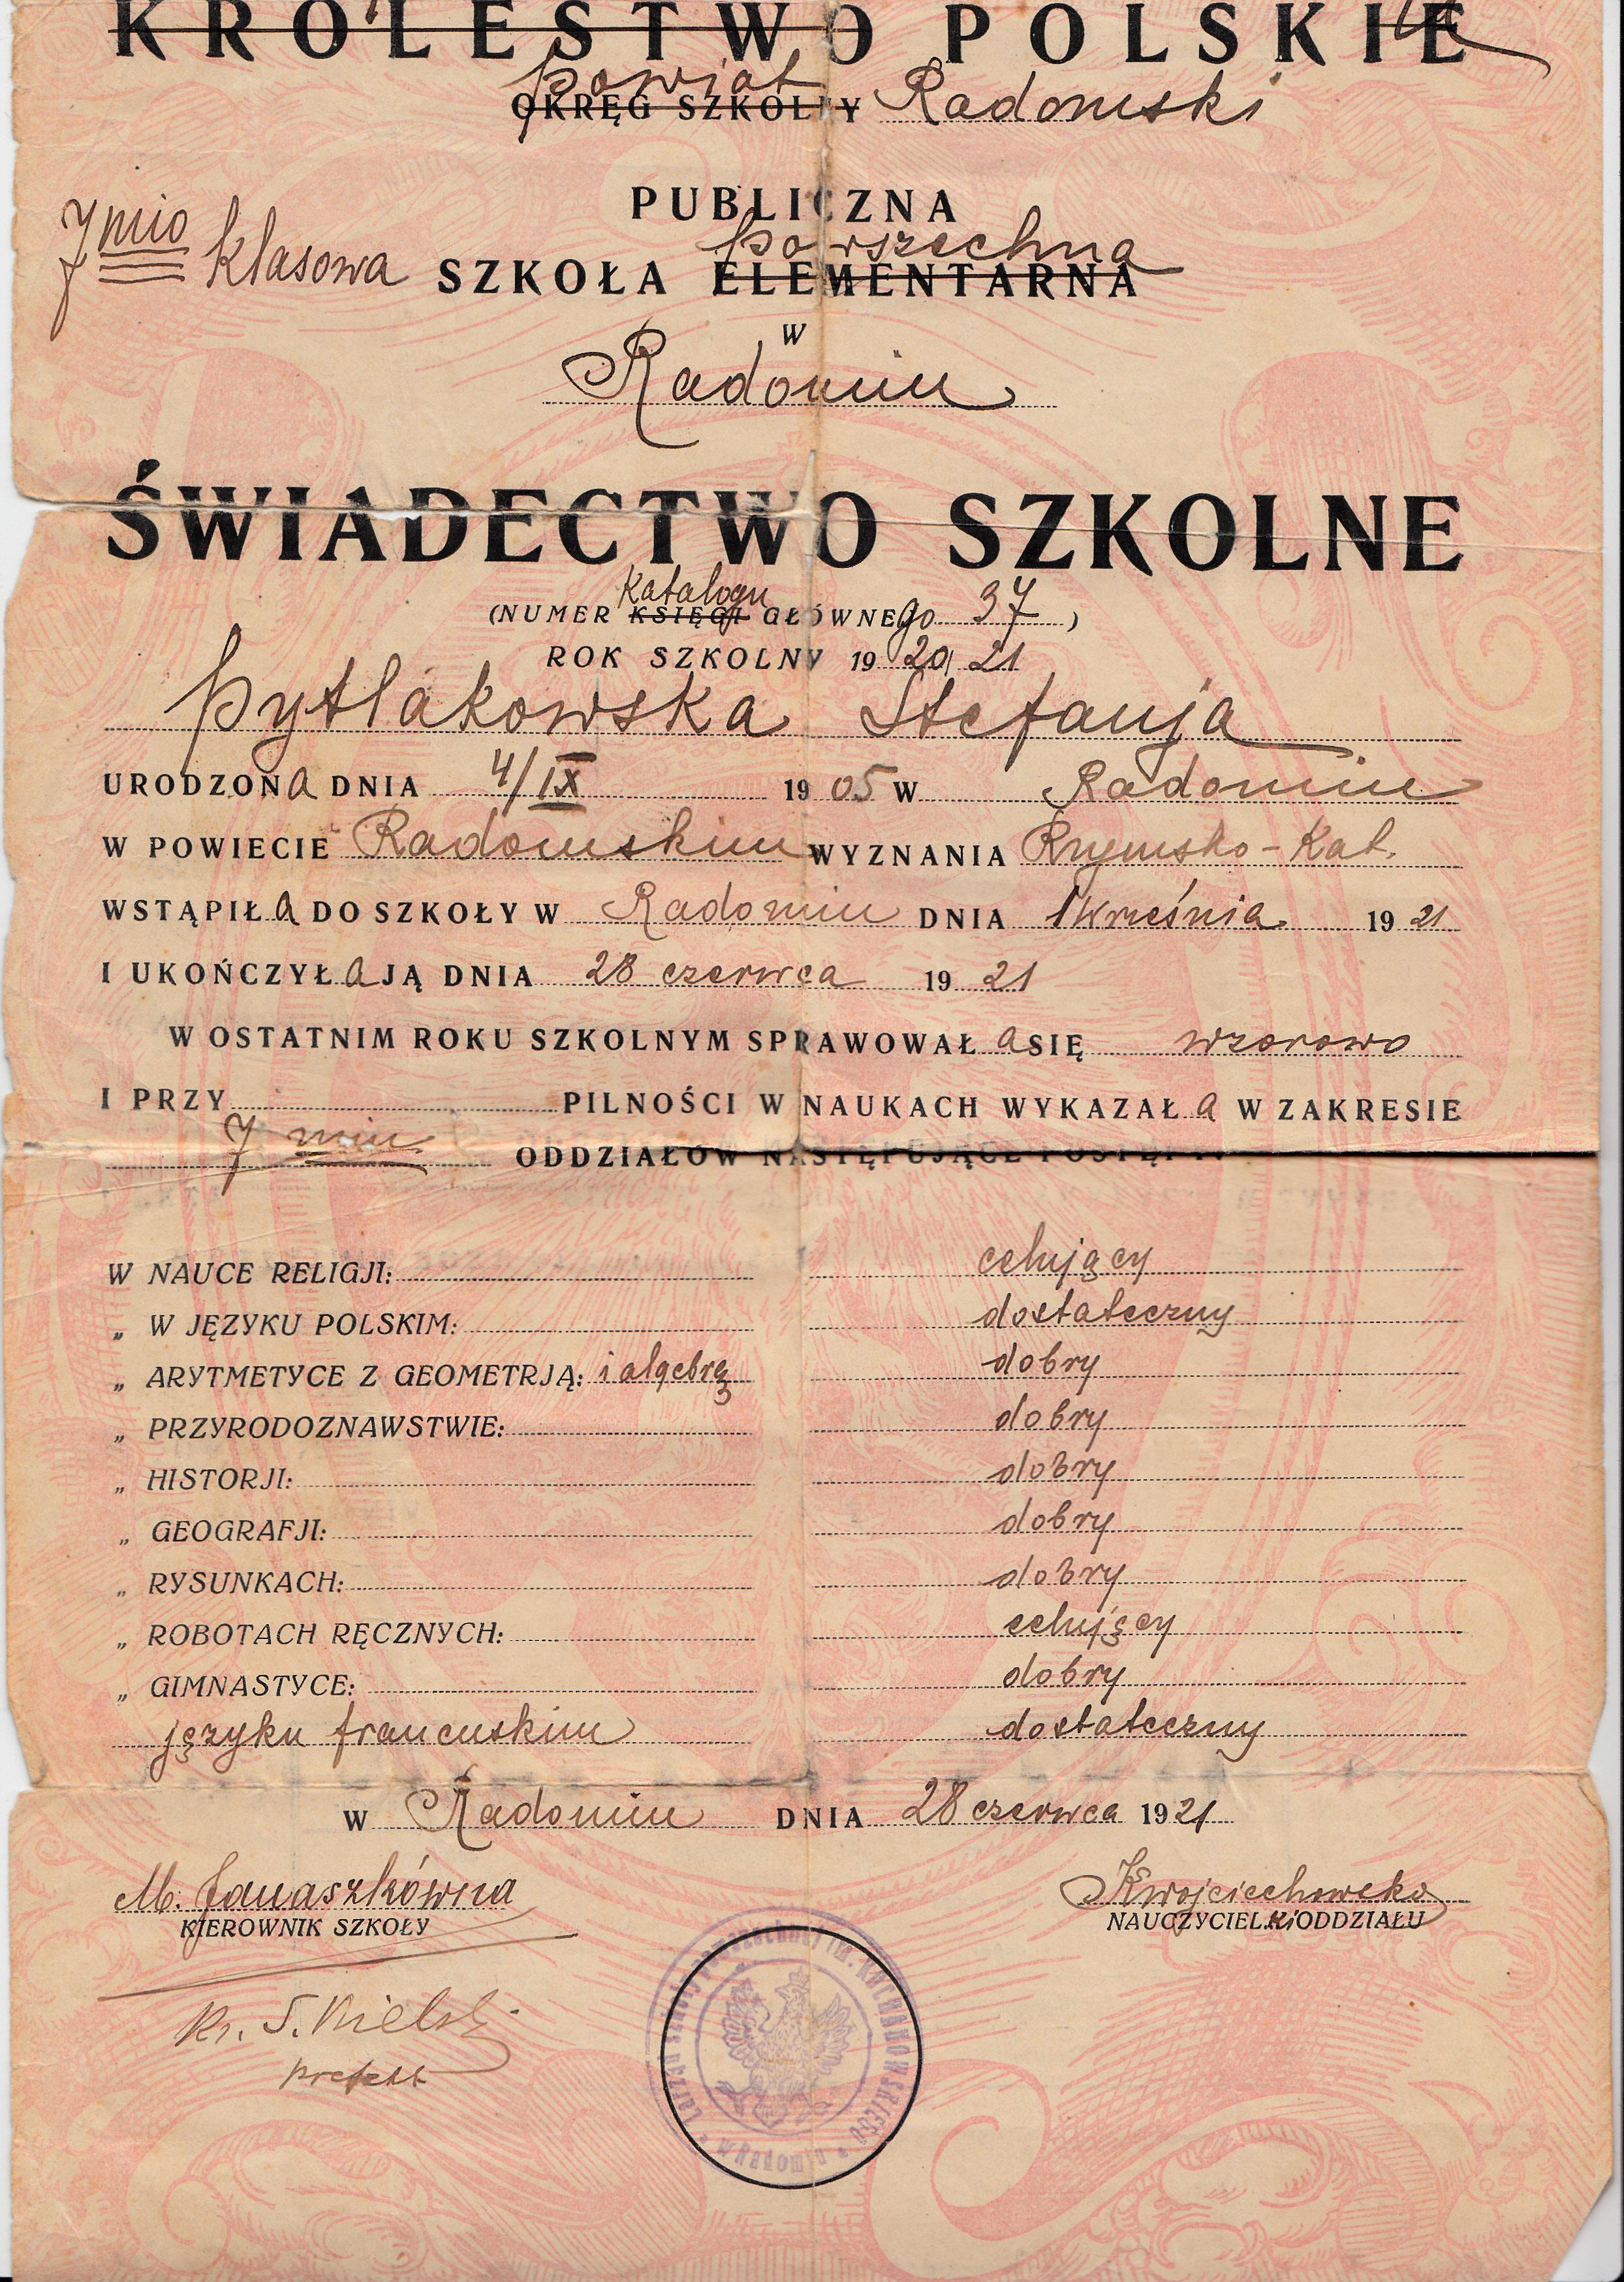 KRÓLESTWO POLSKIE
powiat
OKRĘG SZKOLNY Radomski
PUBLICZNA
7mio klasowa SZKOŁA ELEMENTARNA powszechna
W
Radomiu
ŚWIADECTWO SZKOLNE
(NUMER KSIĘGI katalogu GŁÓWNEgo 37)
ROK SZKOLNY 1920/21
Pytlakowska Stefanja
URODZONa DNIA 4/IX 1905 W Radomiu
W POWIECIE Radomskim WYZNANIA Rzymsko-Kat.
WSTĄPIŁa DO SZKOŁY W Radomiu DNIA 1 Września 1921
I UKOŃCZYŁa JĄ DNIA 28 czerwca 1921
W OSTATNIM ROKU SZKOLNYM SPRAWOWAŁa SIĘ wzorowo
I PRZY PILNOŚCI W NAUKACH WYKAZAŁa W ZAKRESIE
7 miu ODDZIAŁÓW NASTĘPUJĄCE POSTĘPY:
W NAUCE RELIGJI: celujący
„ W JĘZYKU POLSKIM: dostateczny
„ ARYTMETYCE Z GEOMETRJĄ: i algebrą dobry
„ PRZYRODOZNAWSTWIE: dobry
„ HISTORJI: dobry
„ GEOGRAFJI: dobry
„ RYSUNKACH: dobry
„ ROBOTACH RĘCZNYCH: celujący
„ GIMNASTYCE: dobry
języku francuskim dostateczny
W Radomiu DNIA 28 czerwca 1921
M. Janaszkówna
KIEROWNIK SZKOŁY
Wojciechowska
NAUCZYCIELki ODDZIAŁU
Ks. S. Kielski
prefekt
Zarząd szkoły powszechnej im. KOCHANOWSKIEGO
w Radomiu